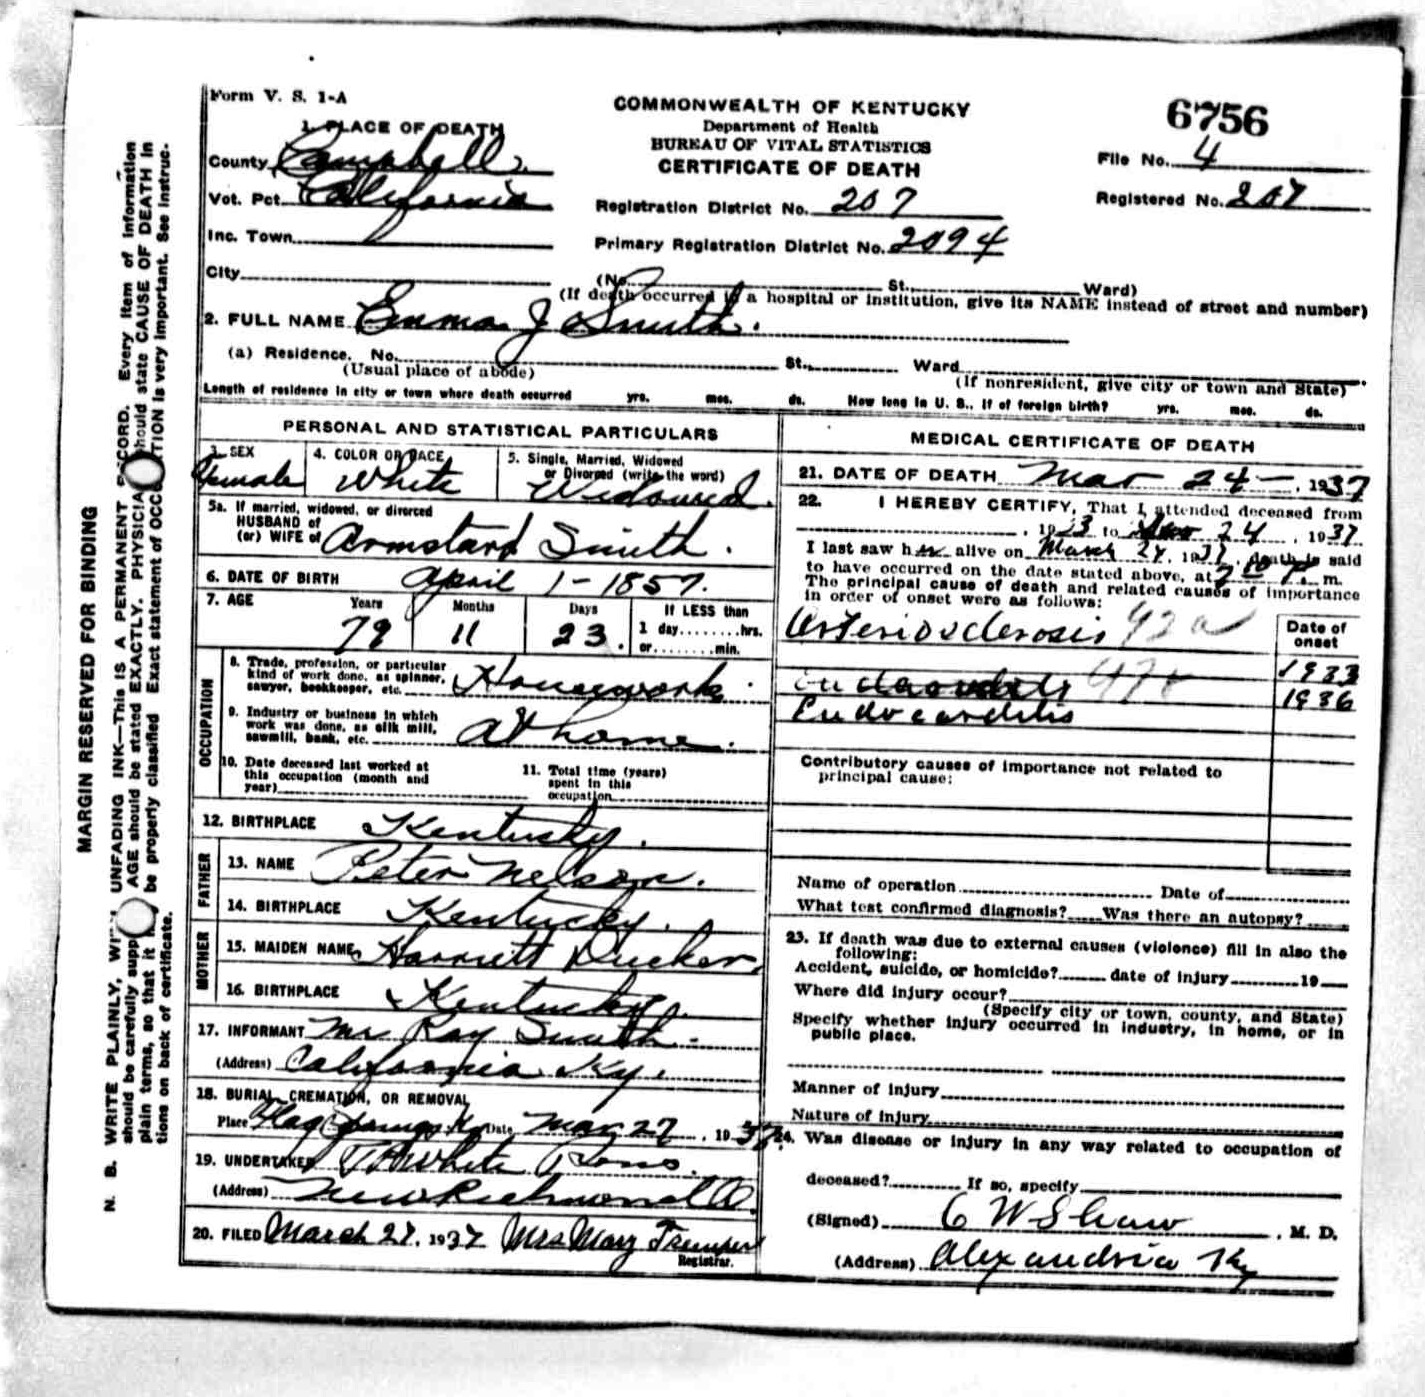 Form V. S. 1-A
COMMONWEALTH OF KENTUCKY
Department of Health
BUREAU OF VITAL STATISTICS
CERTIFICATE OF DEATH
6756
File No. 4
Registered No. 207
1. PLACE OF DEATH
County Campbell
Vot. Pct. California
Registration District No. 207
Inc. Town
Primary Registration District No. 2094
City (No. St. Ward)
(If death occurred in a hospital or institution, give its NAME instead of street and number)
2. FULL NAME Emma J Smith.
(a) Residence. No. St., Ward
(Usual place of abode) (If nonresident, give city or town and State)
Length of residence in city or town where death occurred yrs. mos. ds. How long in U. S., if of foreign birth? yrs. mos. ds.
PERSONAL AND STATISTICAL PARTICULARS
3. SEX Female
4. COLOR OR RACE White
5. Single, Married, Widowed
or Divorced (write the word)
Widowed.
5a. If married, widowed, or divorced
HUSBAND of
(or) WIFE of Armstard Smith.
6. DATE OF BIRTH April 1-1857.
7. AGE Years Months Days If LESS than
79 11 23. 1 day........hrs.
or........min.
OCCUPATION
8. Trade, profession, or particular
kind of work done, as spinner,
sawyer, bookkeeper, etc. Housework.
9. Industry or business in which
work was done, as silk mill,
sawmill, bank, etc. at home.
10. Date deceased last worked at
this occupation (month and
year)
11. Total time (years)
spent in this
occupation
12. BIRTHPLACE Kentucky.
FATHER
13. NAME Peter Nelson.
14. BIRTHPLACE Kentucky.
MOTHER
15. MAIDEN NAME Harriett Ducker.
16. BIRTHPLACE Kentucky.
17. INFORMANT Mr Ray Smith.
(Address) California Ky.
18. BURIAL, CREMATION, OR REMOVAL
Place Flag Springs Ky Date Mar 27, 1937
19. UNDERTAKER White Sons.
(Address) New Richmond O.
20. FILED March 27, 1937 Mrs May Tremper
Registrar.
MEDICAL CERTIFICATE OF DEATH
21. DATE OF DEATH Mar 24-, 1937
22. I HEREBY CERTIFY, That I attended deceased from
, 1933 to 24, 1937.
I last saw her alive on March 24, 1937, death is said
to have occurred on the date stated above, at m.
The principal cause of death and related causes of importance
in order of onset were as follows:
Date of
onset
Arteriosclerosis 1933
1936
Endocarditis
Contributory causes of importance not related to
principal cause:
Name of operation Date of
What test confirmed diagnosis? Was there an autopsy?
23. If death was due to external causes (violence) fill in also the
following:
Accident, suicide, or homicide? date of injury 19
Where did injury occur?
(Specify city or town, county, and State)
Specify whether injury occurred in industry, in home, or in
public place.
Manner of injury
Nature of injury
24. Was disease or injury in any way related to occupation of
deceased? If so, specify
(Signed) C W Shaw, M. D.
(Address) Alexandria Ky
MARGIN RESERVED FOR BINDING
N. B. WRITE PLAINLY, WITH UNFADING INK—This IS A PERMANENT RECORD. Every item of information
should be carefully supplied. AGE should be stated EXACTLY. PHYSICIANS should state CAUSE OF DEATH in
plain terms, so that it may be properly classified. Exact statement of OCCUPATION is very important. See instruc-
tions on back of certificate.